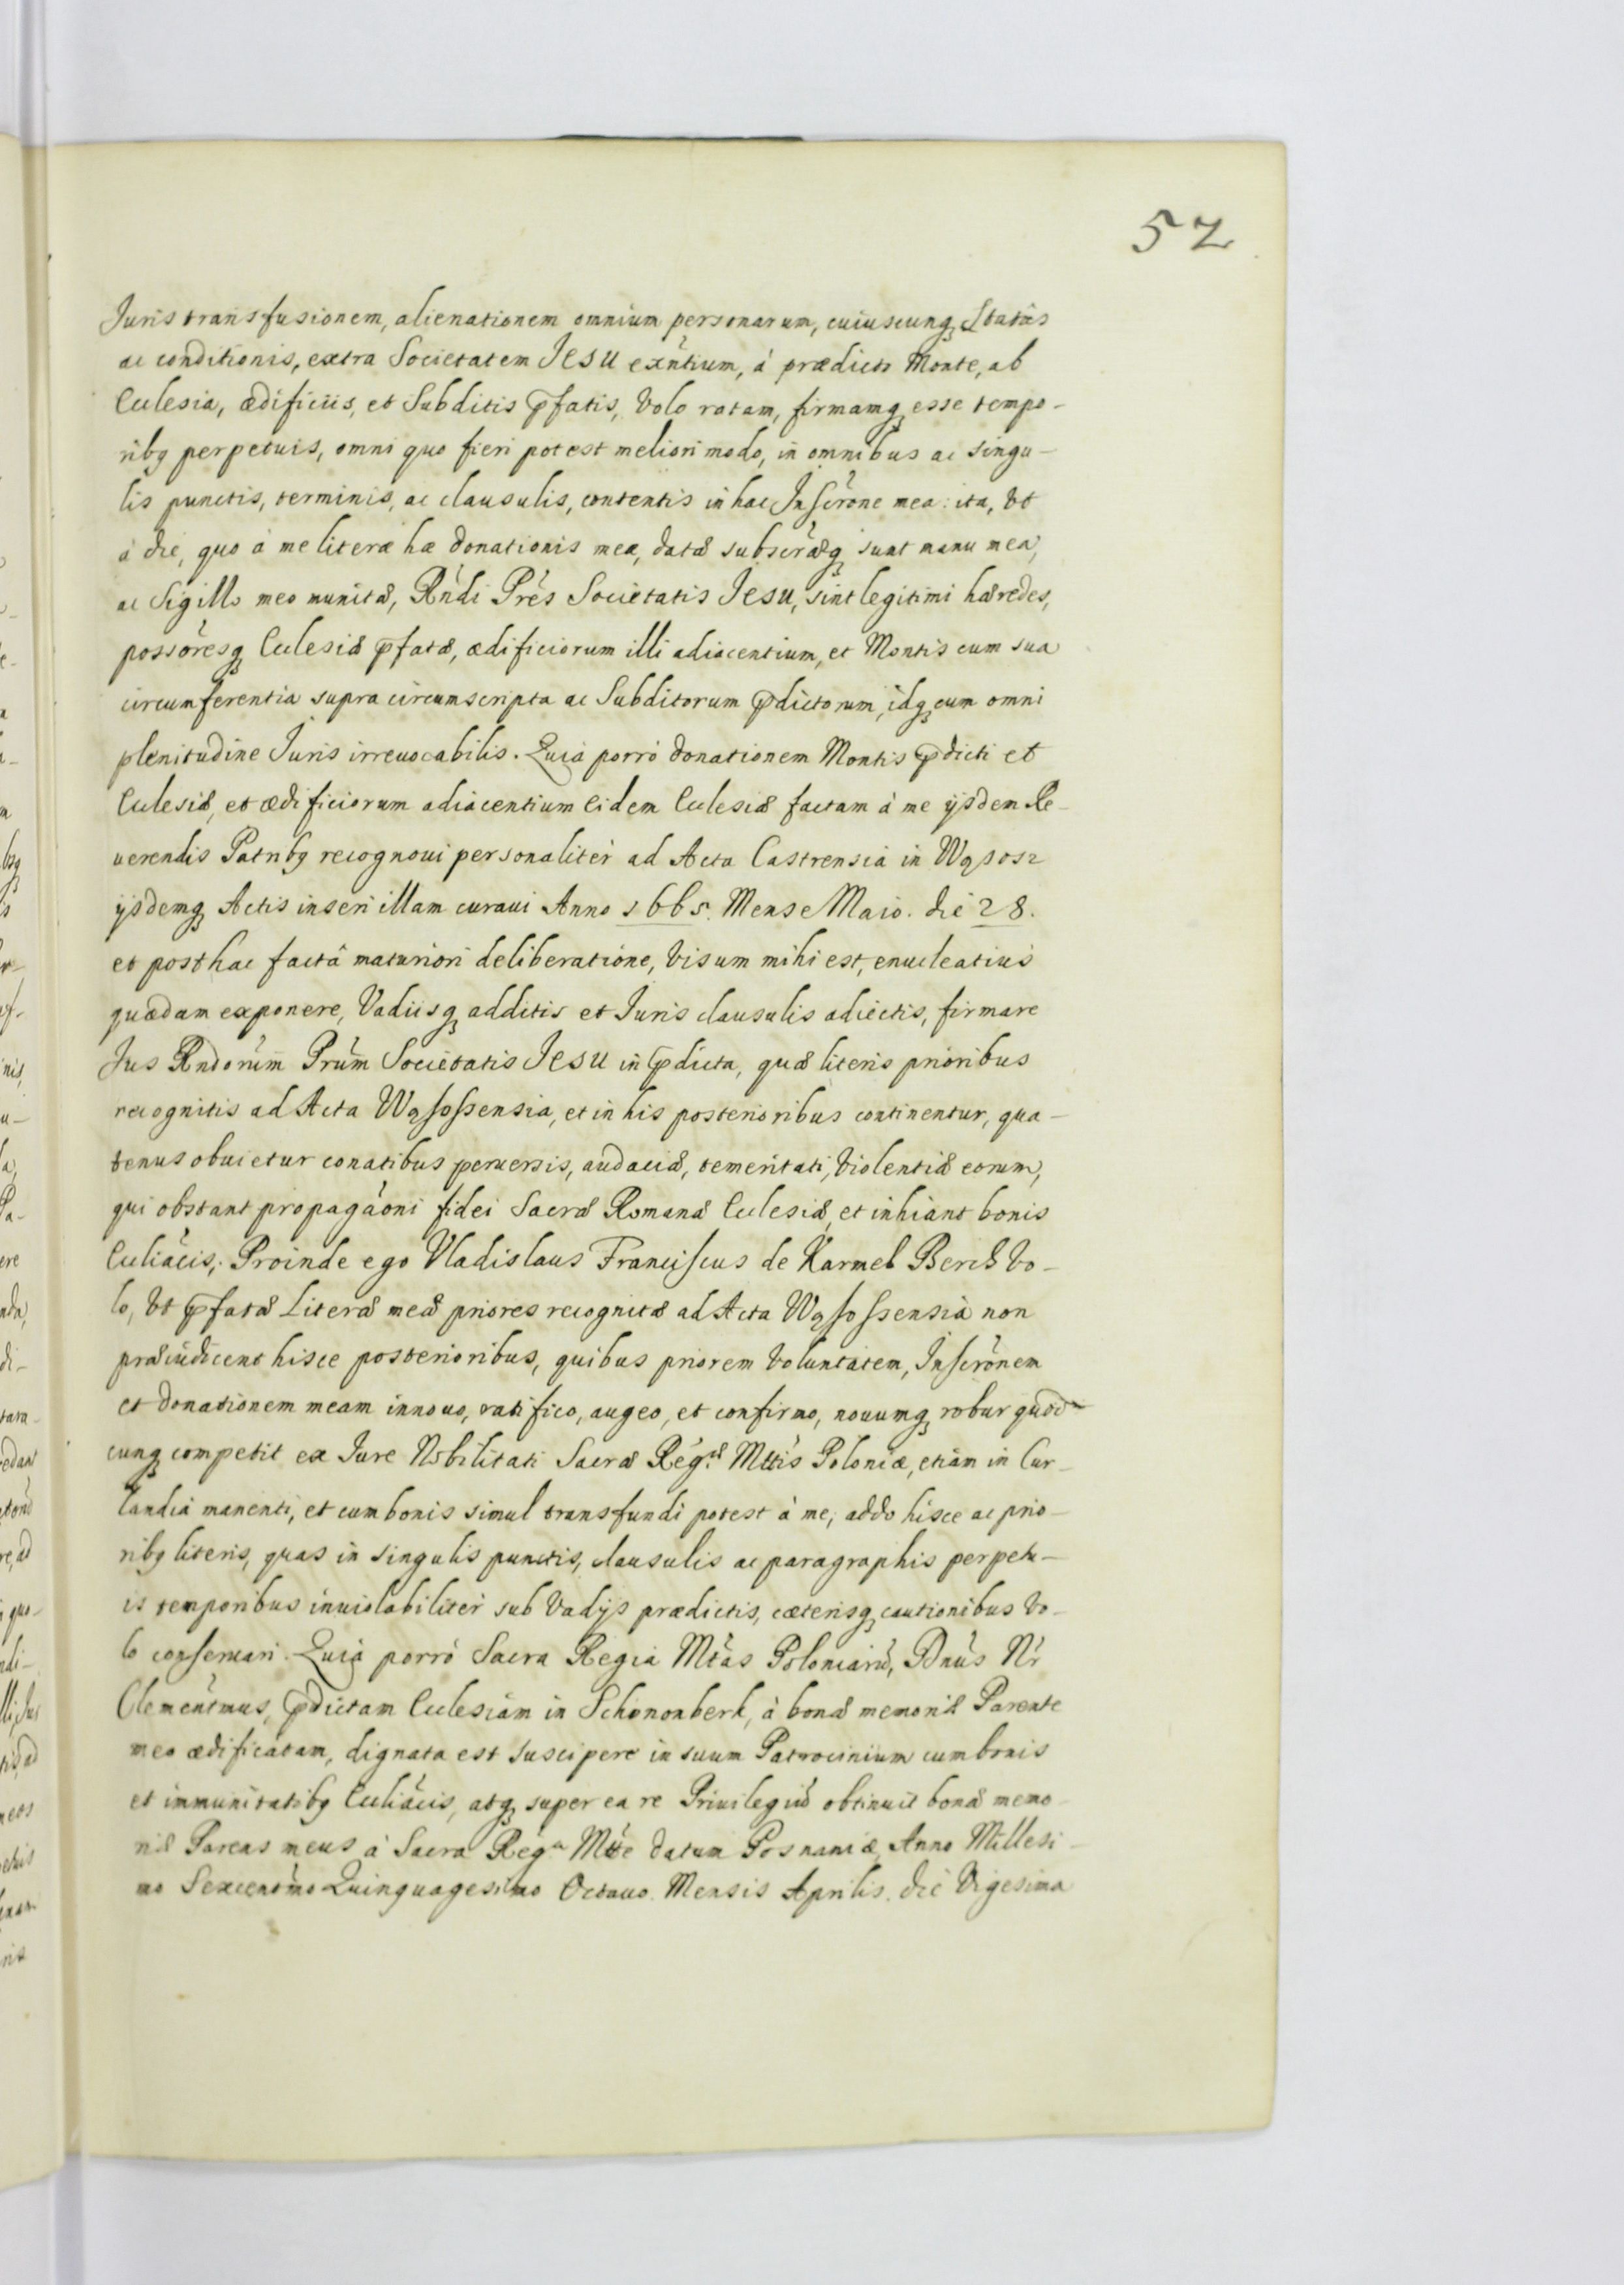 52
Juris transfusionem, alienationem omnium personarum, cuiuscunq; Status
ac conditionis, extra Societatem JESU exñtium, à prædicto Monte, ab
Eclesia, ædificiis, et Subditis p̄fatis, Volo ratam, firmamq; esse tempo-
ribq perpetuis, omni quo fieri potest meliori modo, in omnibus ac singu-
lis punctis, terminis, ac clausulis, contentis in hac Inscrône mea: ita, Vt
à die, quo à me literæ hæ donationis meæ, datæ subscrâeq; sunt manu mea,
ac Sigillo meo munitæ, Rńdi Prés Societatis Jesu, sint legitimi hæredes,
possôresq; Eclesiæ p̄fatæ, ædificiorum illi adiacentium, et Montis cum sua
circumferentia supra circumscripta ac Subditorum p̄dictorum, idq; cum omni
plenitudine Juris irreuocabilis. Quia porrò donationem Montis p̄dicti et
Eclesiæ, et ædificiorum adiacentium Eidem Eclesiæ factam à me ÿsdem Re-
uerendis Patribq recognoui personaliter ad Acta Castrensia in Wąsosz
ÿsdemq; Actis inseri illam curaui Anno 1665. Mense Maio. die 28.
et post hac factâ maturiori deliberatione, Visum mihi est, enucleatius
quædam exponere, Vadiisq; additis et Juris clausulis adiectis, firmare
Jus Rndorum Prum Societatis JESU in p̄dicta, quæ literis prioribus
recognitis ad Acta Wąsossensia, et in his posterioribus continentur, qua-
tenus obuietur conatibus peruersis, audaciæ, temeritati, Violentiæ eorum,
qui obstant propagâoni fidei Sacræ Romanæ Eclesiæ, et inhiant bonis
Ecliâcis; Proinde ego Vladislaus Franciscus de Karmel Berch Vo-
lo, Vt p̄fatæ Literæ meæ priores recognitæ ad Acta Wąsossensia non
præiudicent hisce posterioribus, quibus priorem Voluntatem, Inscrônem
et donationem meam innouo, ratifico, augeo, et confirmo, nouumq; robur quod-
cunq; competit ex Jure Nobilitati Sacræ Regæ Mttis Poloniæ, etiam in Cur-
landia manenti, et cum bonis simul transfundi potest à me, addo hisce ac prio-
ribq literis, quas in singulis punctis, clausulis ac paragraphis perpetu-
is temporibus inuiolabiliter sub Vadÿs prædictis, cæterisq; cautionibus Vo-
lo conseruari. Quia porrò Sacra Regia Mtas Poloniarũ, Dnus Nr
Clementmus, p̄dictam Eclesiam in Schononberk, à bonæ memoriæ Parente
meo ædificatam, dignata est suscipere in suum Patrocinium cum bonis
et immunitatibq Ecliâcis, atq; super ea re Priuilegiũ obtinuit bonæ memo-
riæ Parens meus à Sacra Rega Mtte datum Posnaniæ, Anno Millesi-
mo Sexcentômo Quinquagesimo Octauo. Mensis Aprilis. die Vigesima